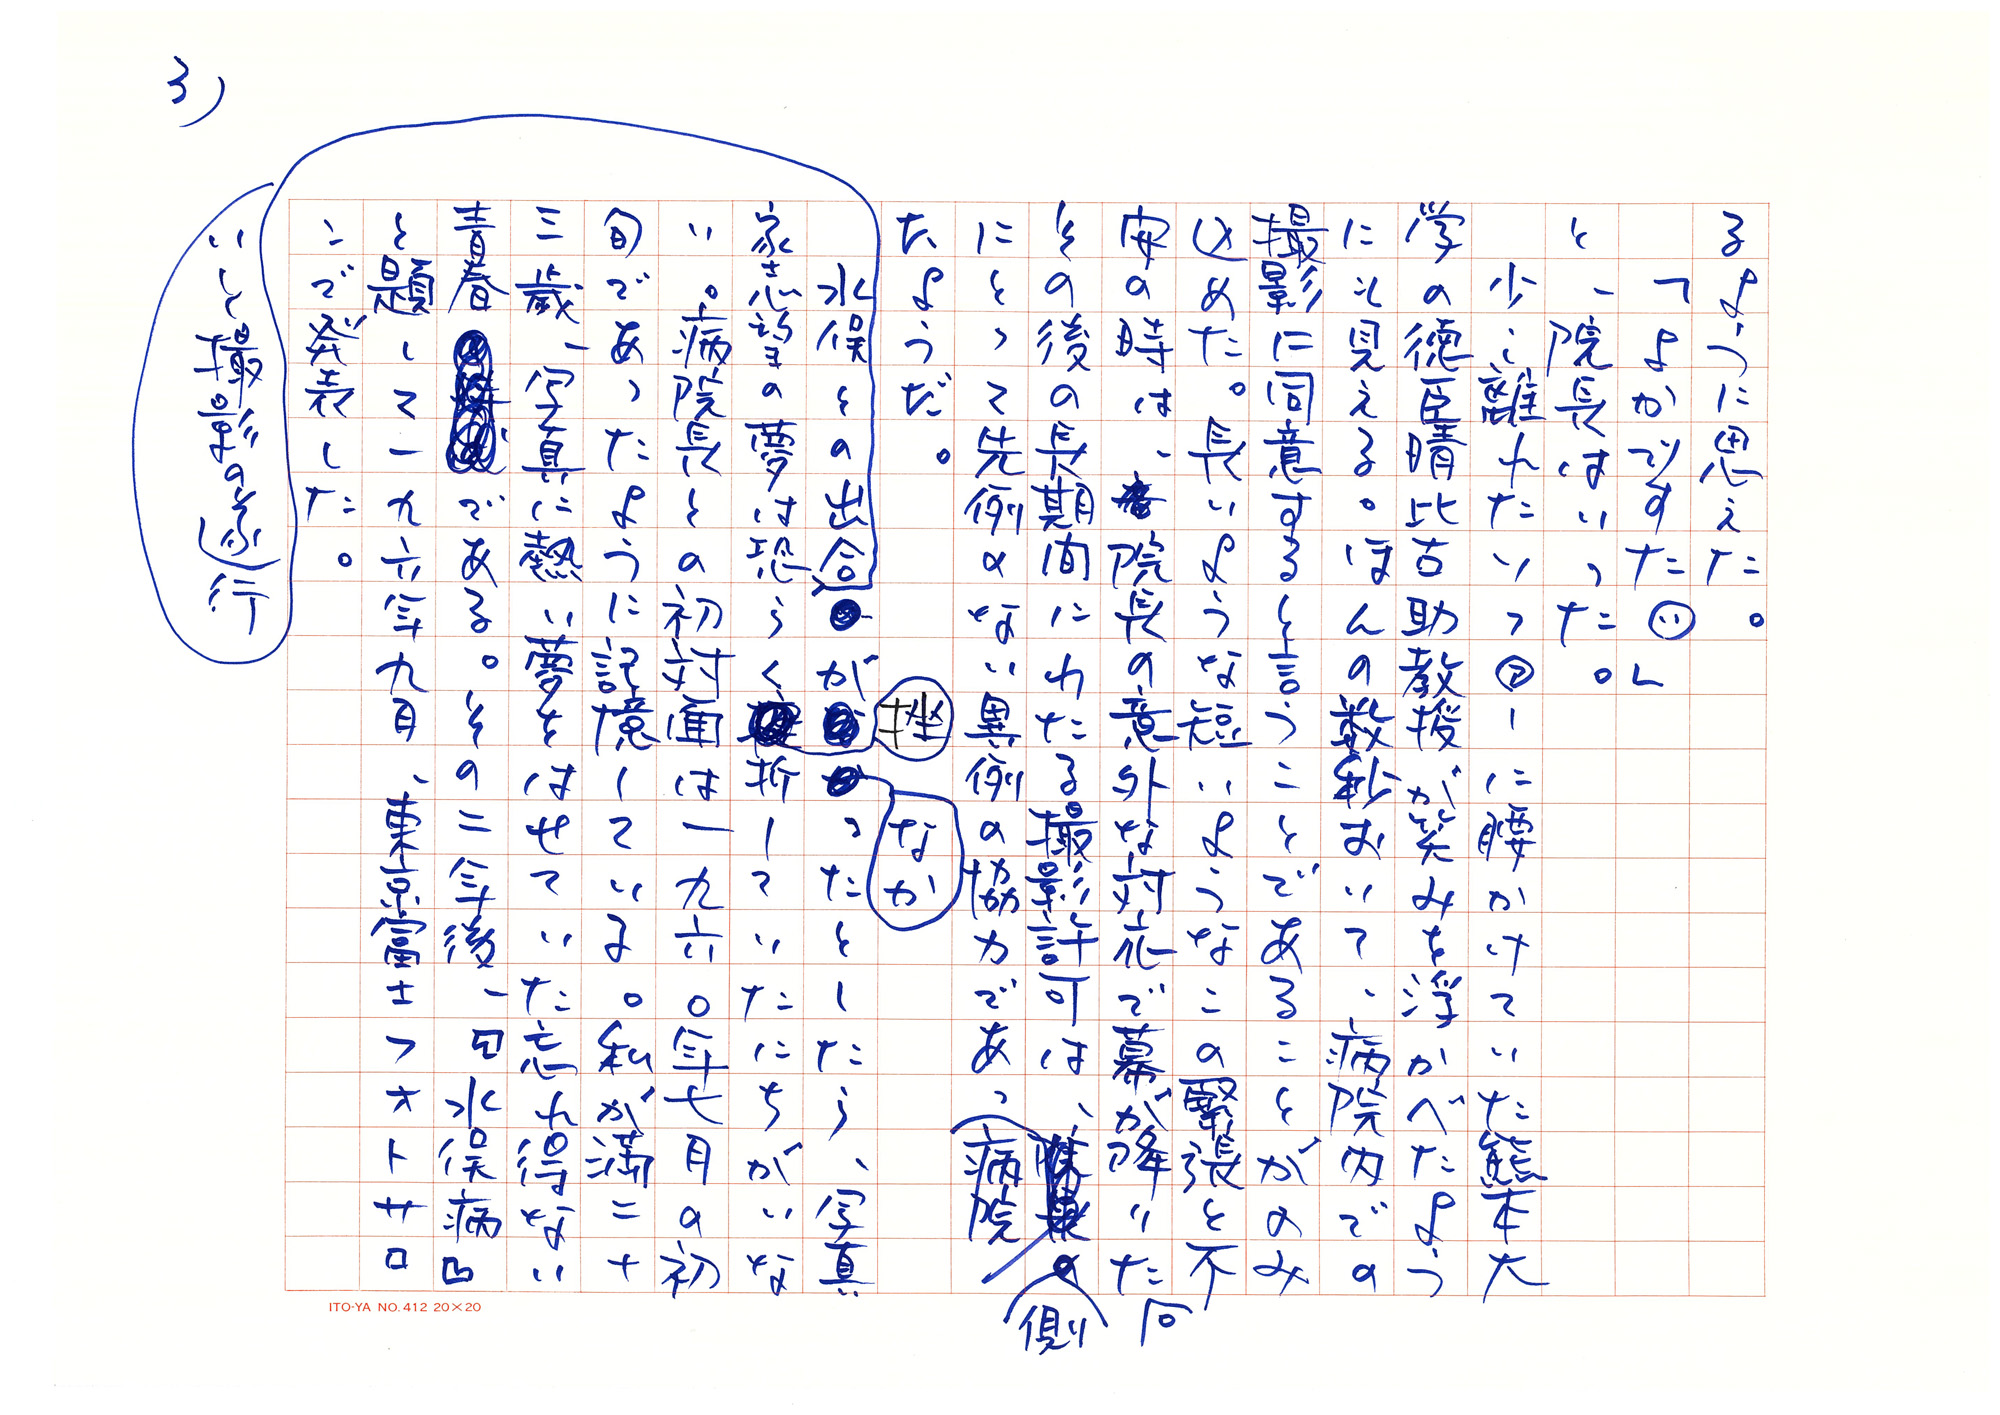 3)
るように思えた。
「よかですたい。」
と、院長はいった。
少し離れたソファーに腰かけていた熊本大
学の徳臣晴比古助教授が笑みを浮かべたよう
にも見える。ほんの数秒おいて、病院内での
撮影に同意すると言うことであることがのみ
込めた。長いような短いようなこの緊張と不
安の時は、院長の意外な対応で幕が降りた。
その後の長期間にわたる撮影許可は、病院側
にとって先例のない異例の協力であっ
たようだ。
水俣との出合いと撮影の続行がなかったとしたら、写真
家志望の夢は恐らく挫折していたにちがいな
い。病院長との初対面は一九六〇年七月の初
旬であったように記憶している。私が満二十
三歳、写真に熱い夢をはせていた忘れ得ない
青春である。その二年後、『水俣病』
と題して一九六年九月、東京富士フォトサロ
ンで発表した。
ITO-YA NO.412 20×20